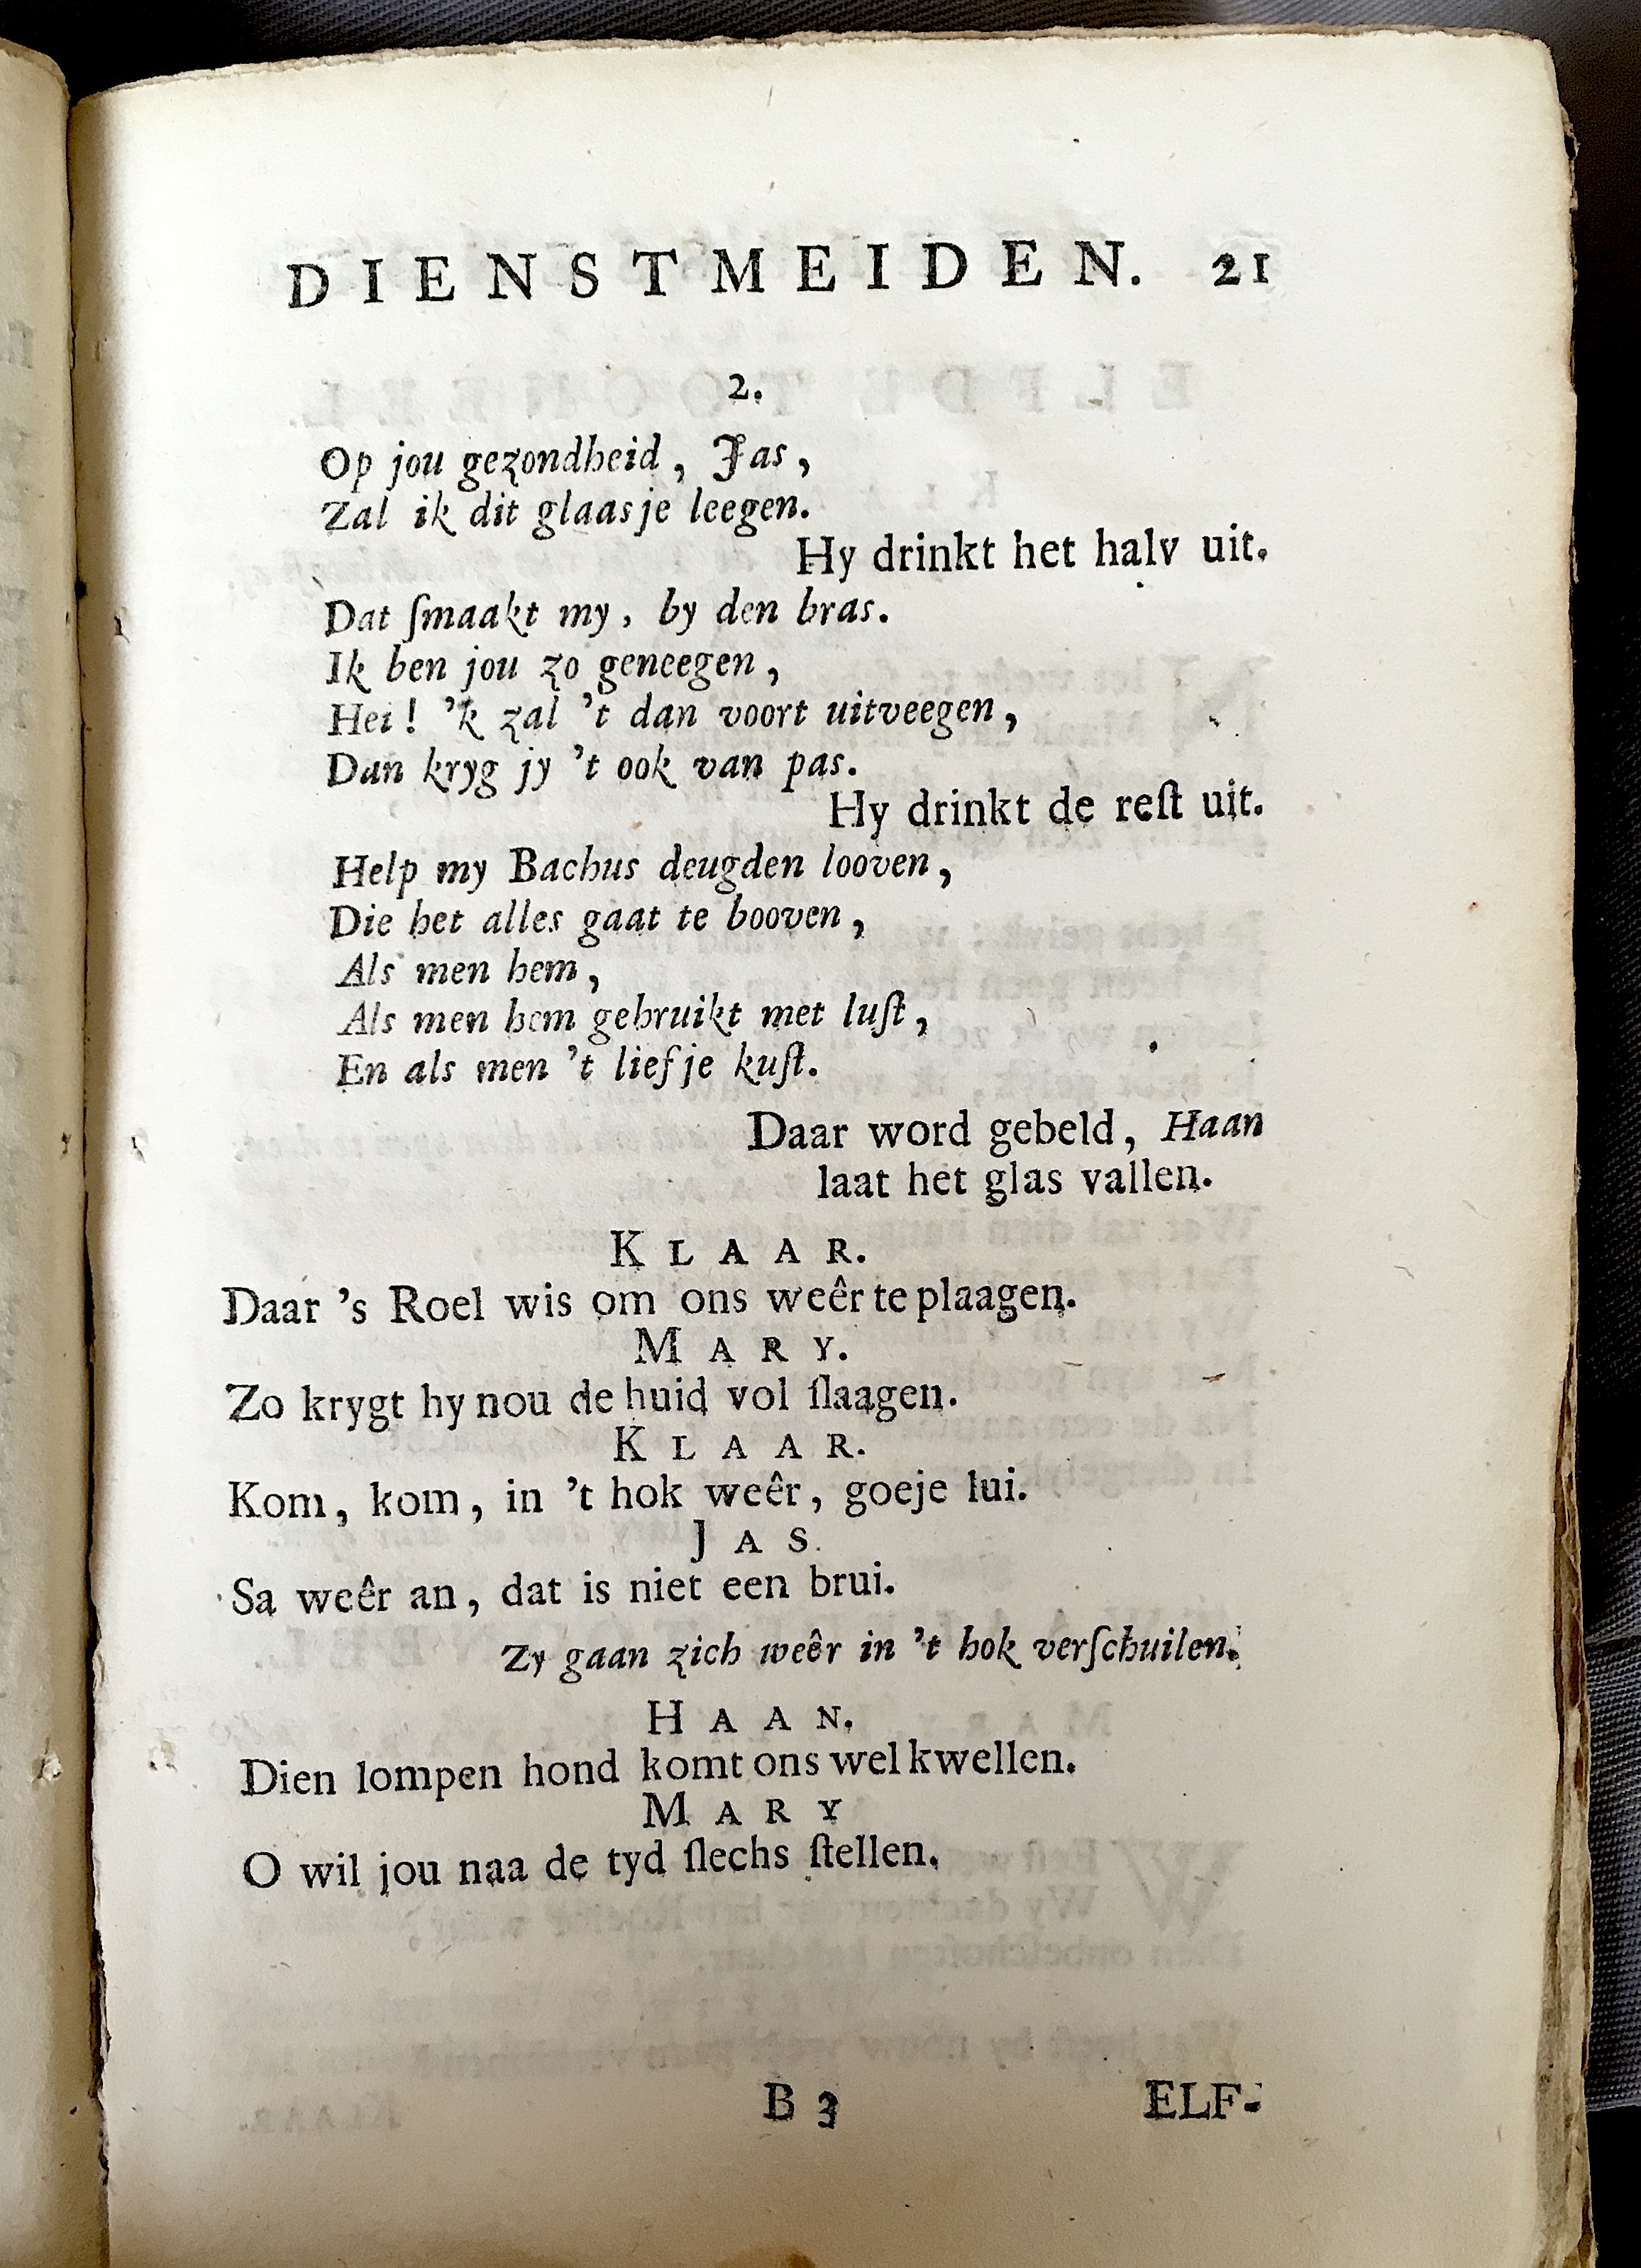 DIENSTMEIDEN. 21
2.
Op jou gezondheid, Jas,
Zal ik dit glaasje leegen.
Hy drinkt het halv uit.
Dat ſmaakt my, by den bras.
Ik ben jou zo geneegen,
Hei! 'k zal 't dan voort uitveegen,
Dan kryg jy 't ook van pas.
Hy drinkt de reſt uit.
Help my Bachus deugden looven,
Die het alles gaat te booven,
Als men hem,
Als men hem gebruikt met luſt,
En als men 't liefje kuſt.
Daar word gebeld, Haan
laat het glas vallen.
KLAAR.
Daar 's Roel wis om ons weêr te plaagen.
MARY.
Zo krygt hy nou de huid vol ſlaagen.
KLAAR.
Kom, kom, in 't hok weêr, goeje lui.
JAS.
Sa weêr an, dat is niet een brui.
Zy gaan zich weêr in 't hok verſchuilen.
HAAN.
Dien lompen hond komt ons wel kwellen.
MARY
O wil jou naa de tyd ſlechs ſtellen.
B 3 ELF-